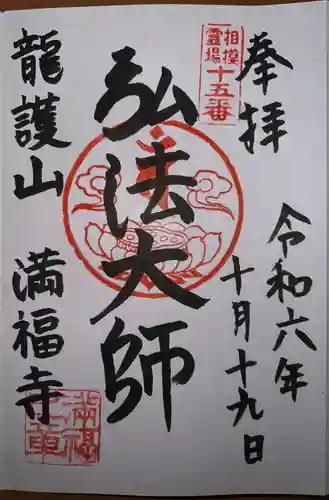 奉拝
相模
霊場
十五番
令和六年
十月十九日
弘法大師
龍護山 満福寺